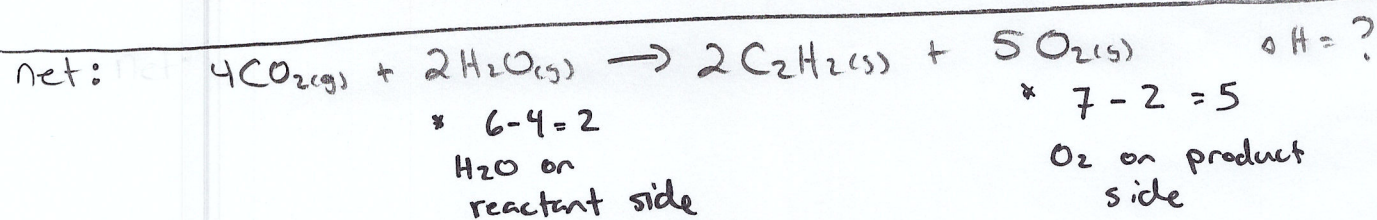 net: 4CO2(g) + 2H2O(g) → 2C2H2(g) + 5O2(g) ΔH = ?
* 6-4=2
H2O on
reactant side
* 7-2=5
O2 on product
side